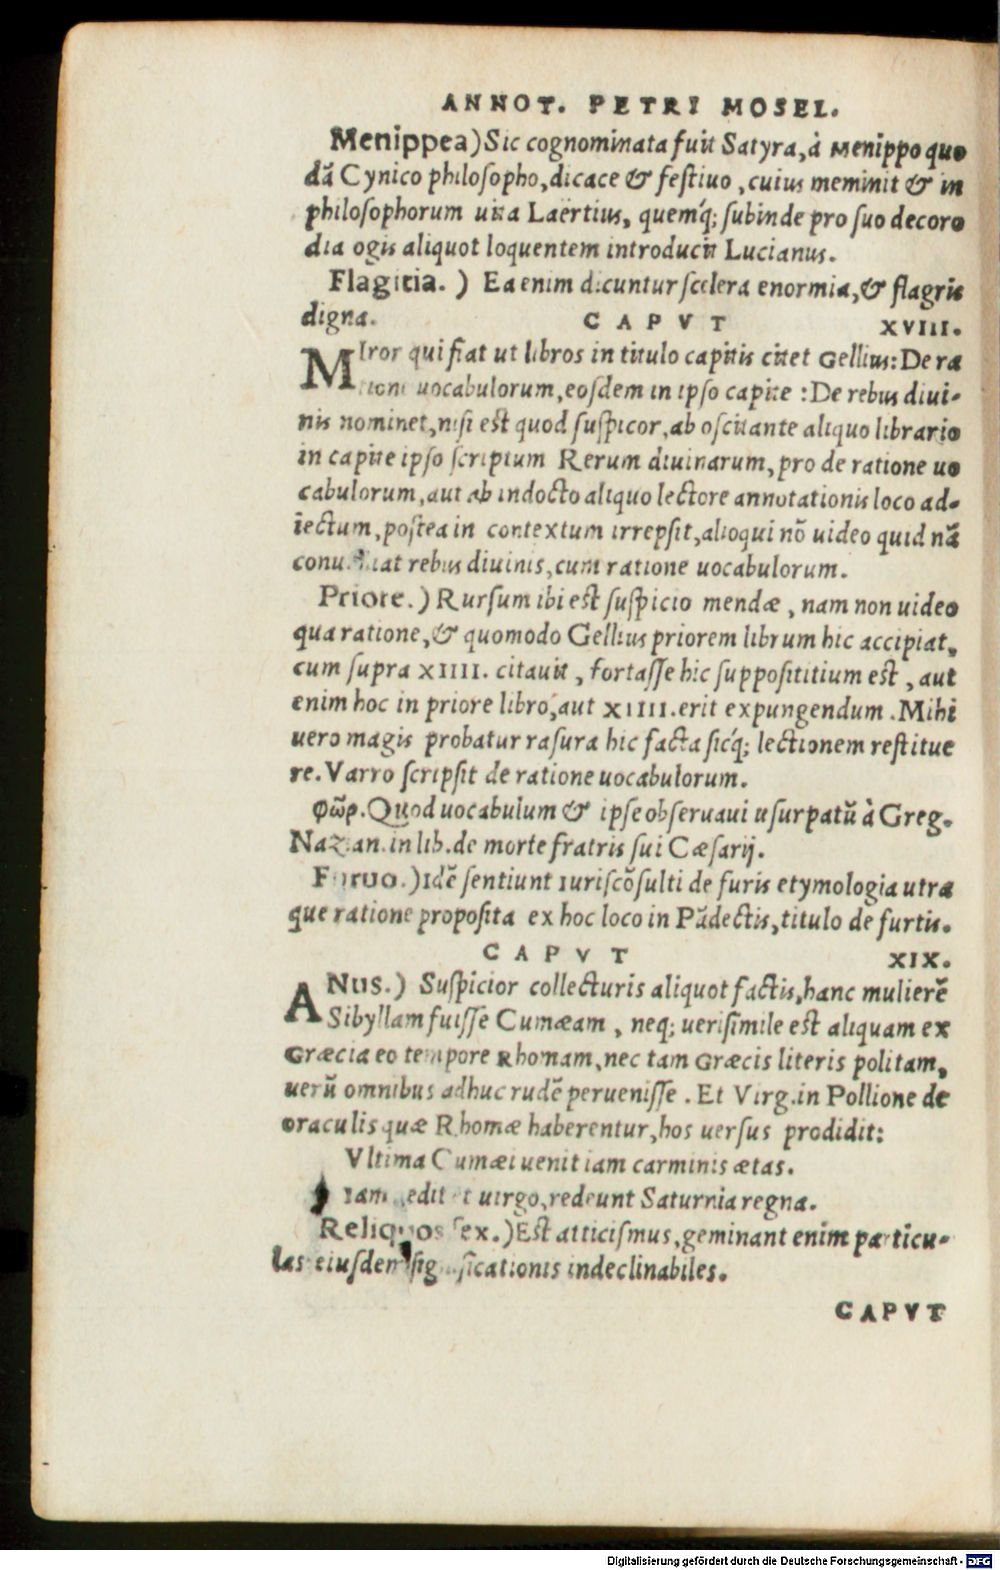 ANNOT. PETRI MOSEL.
Menippea) Sic cognominata fuit Satyra, à Menippo quo
dã Cynico philosopho, dicace & festiuo, cuius meminit & in
philosophorum uita Laërtius, quemq́; subinde pro suo decoro
dia ogis aliquot loquentem introducit Lucianus.
Flagitia. ) Ea enim dicuntur scelera enormia, & flagris
digna. CAPVT XVIII.
MIror qui fiat ut libros in titulo capitis citet Gellius: De ra
tione uocabulorum, eosdem in ipso capite : De rebus diui-
nis nominet, nisi est quod suspicor, ab oscitante aliquo librario
in capite ipso scriptum Rerum diuinarum, pro de ratione uo
cabulorum, aut ab indocto aliquo lectore annotationis loco ad-
iectum, postea in contextum irrepsit, alioqui nõ uideo quid nã
conueniat rebus diuinis, cum ratione uocabulorum.
Priore.) Rursum ibi est suspicio mendæ, nam non uideo
qua ratione, & quomodo Gellius priorem librum hic accipiat,
cum supra XIIII. citauit, fortasse hic supposititium est, aut
enim hoc in priore libro, aut XIIII. erit expungendum. Mihi
uero magis probatur rasura hic facta sicq́; lectionem restitue
re. Varro scripsit de ratione uocabulorum.
φῶρ. Quod uocabulum & ipse obseruaui usurpatũ à Greg.
Nazian. in lib. de morte fratris sui Cæsarij.
Foruo.) Idẽ sentiunt iuriscõsulti de furis etymologia utra
que ratione proposita ex hoc loco in Pãdectis, titulo de furtis.
CAPVT XIX.
ANUS.) Suspicior collecturis aliquot factis, hanc mulierẽ
Sibyllam fuisse Cumæam, neq; uerisimile est aliquam ex
Græcia eo tempore Rhomam, nec tam Græcis literis politam,
uerũ omnibus adhuc rudẽ peruenisse. Et Virg. in Pollione de
oraculis quæ Rhomæ haberentur, hos uersus prodidit:
Vltima Cumæi uenit iam carminis ætas.
Iam redit et uirgo, redeunt Saturnia regna.
Reliquos sex.) Est atticismus, geminant enim particu-
las eiusdem significationis indeclinabiles.
CAPVT
Digitalisierung gefördert durch die Deutsche Forschungsgemeinschaft - DFG